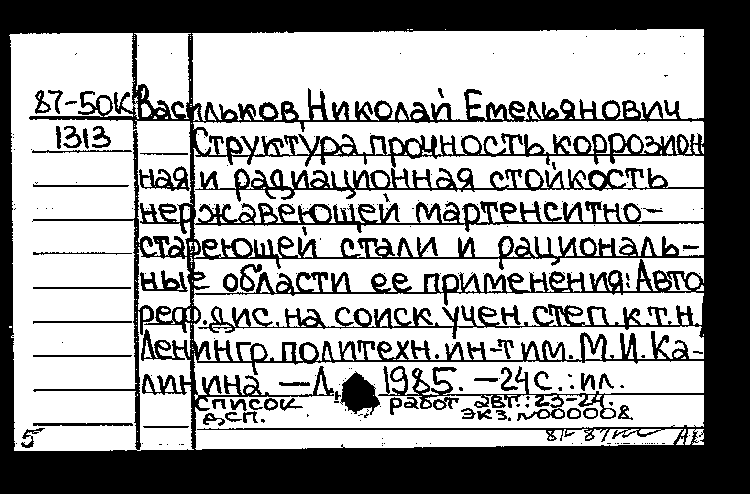 87-50К Васильков, Николай Емельянович
1313 Структура, прочность, коррозион
ная и радиационная стойкость
нержавеющей мартенситно-
стареющей стали и рациональ-
ные области ее применения: Авто
реф. дис. на соиск. учен. степ. к.т.н.
Ленингр. политехн. ин-т им. М.И. Ка-
линина. — Л., 1985. — 24 с.: ил.
Список работ авт.: 23-24.
д.сп. экз. №000008.
5